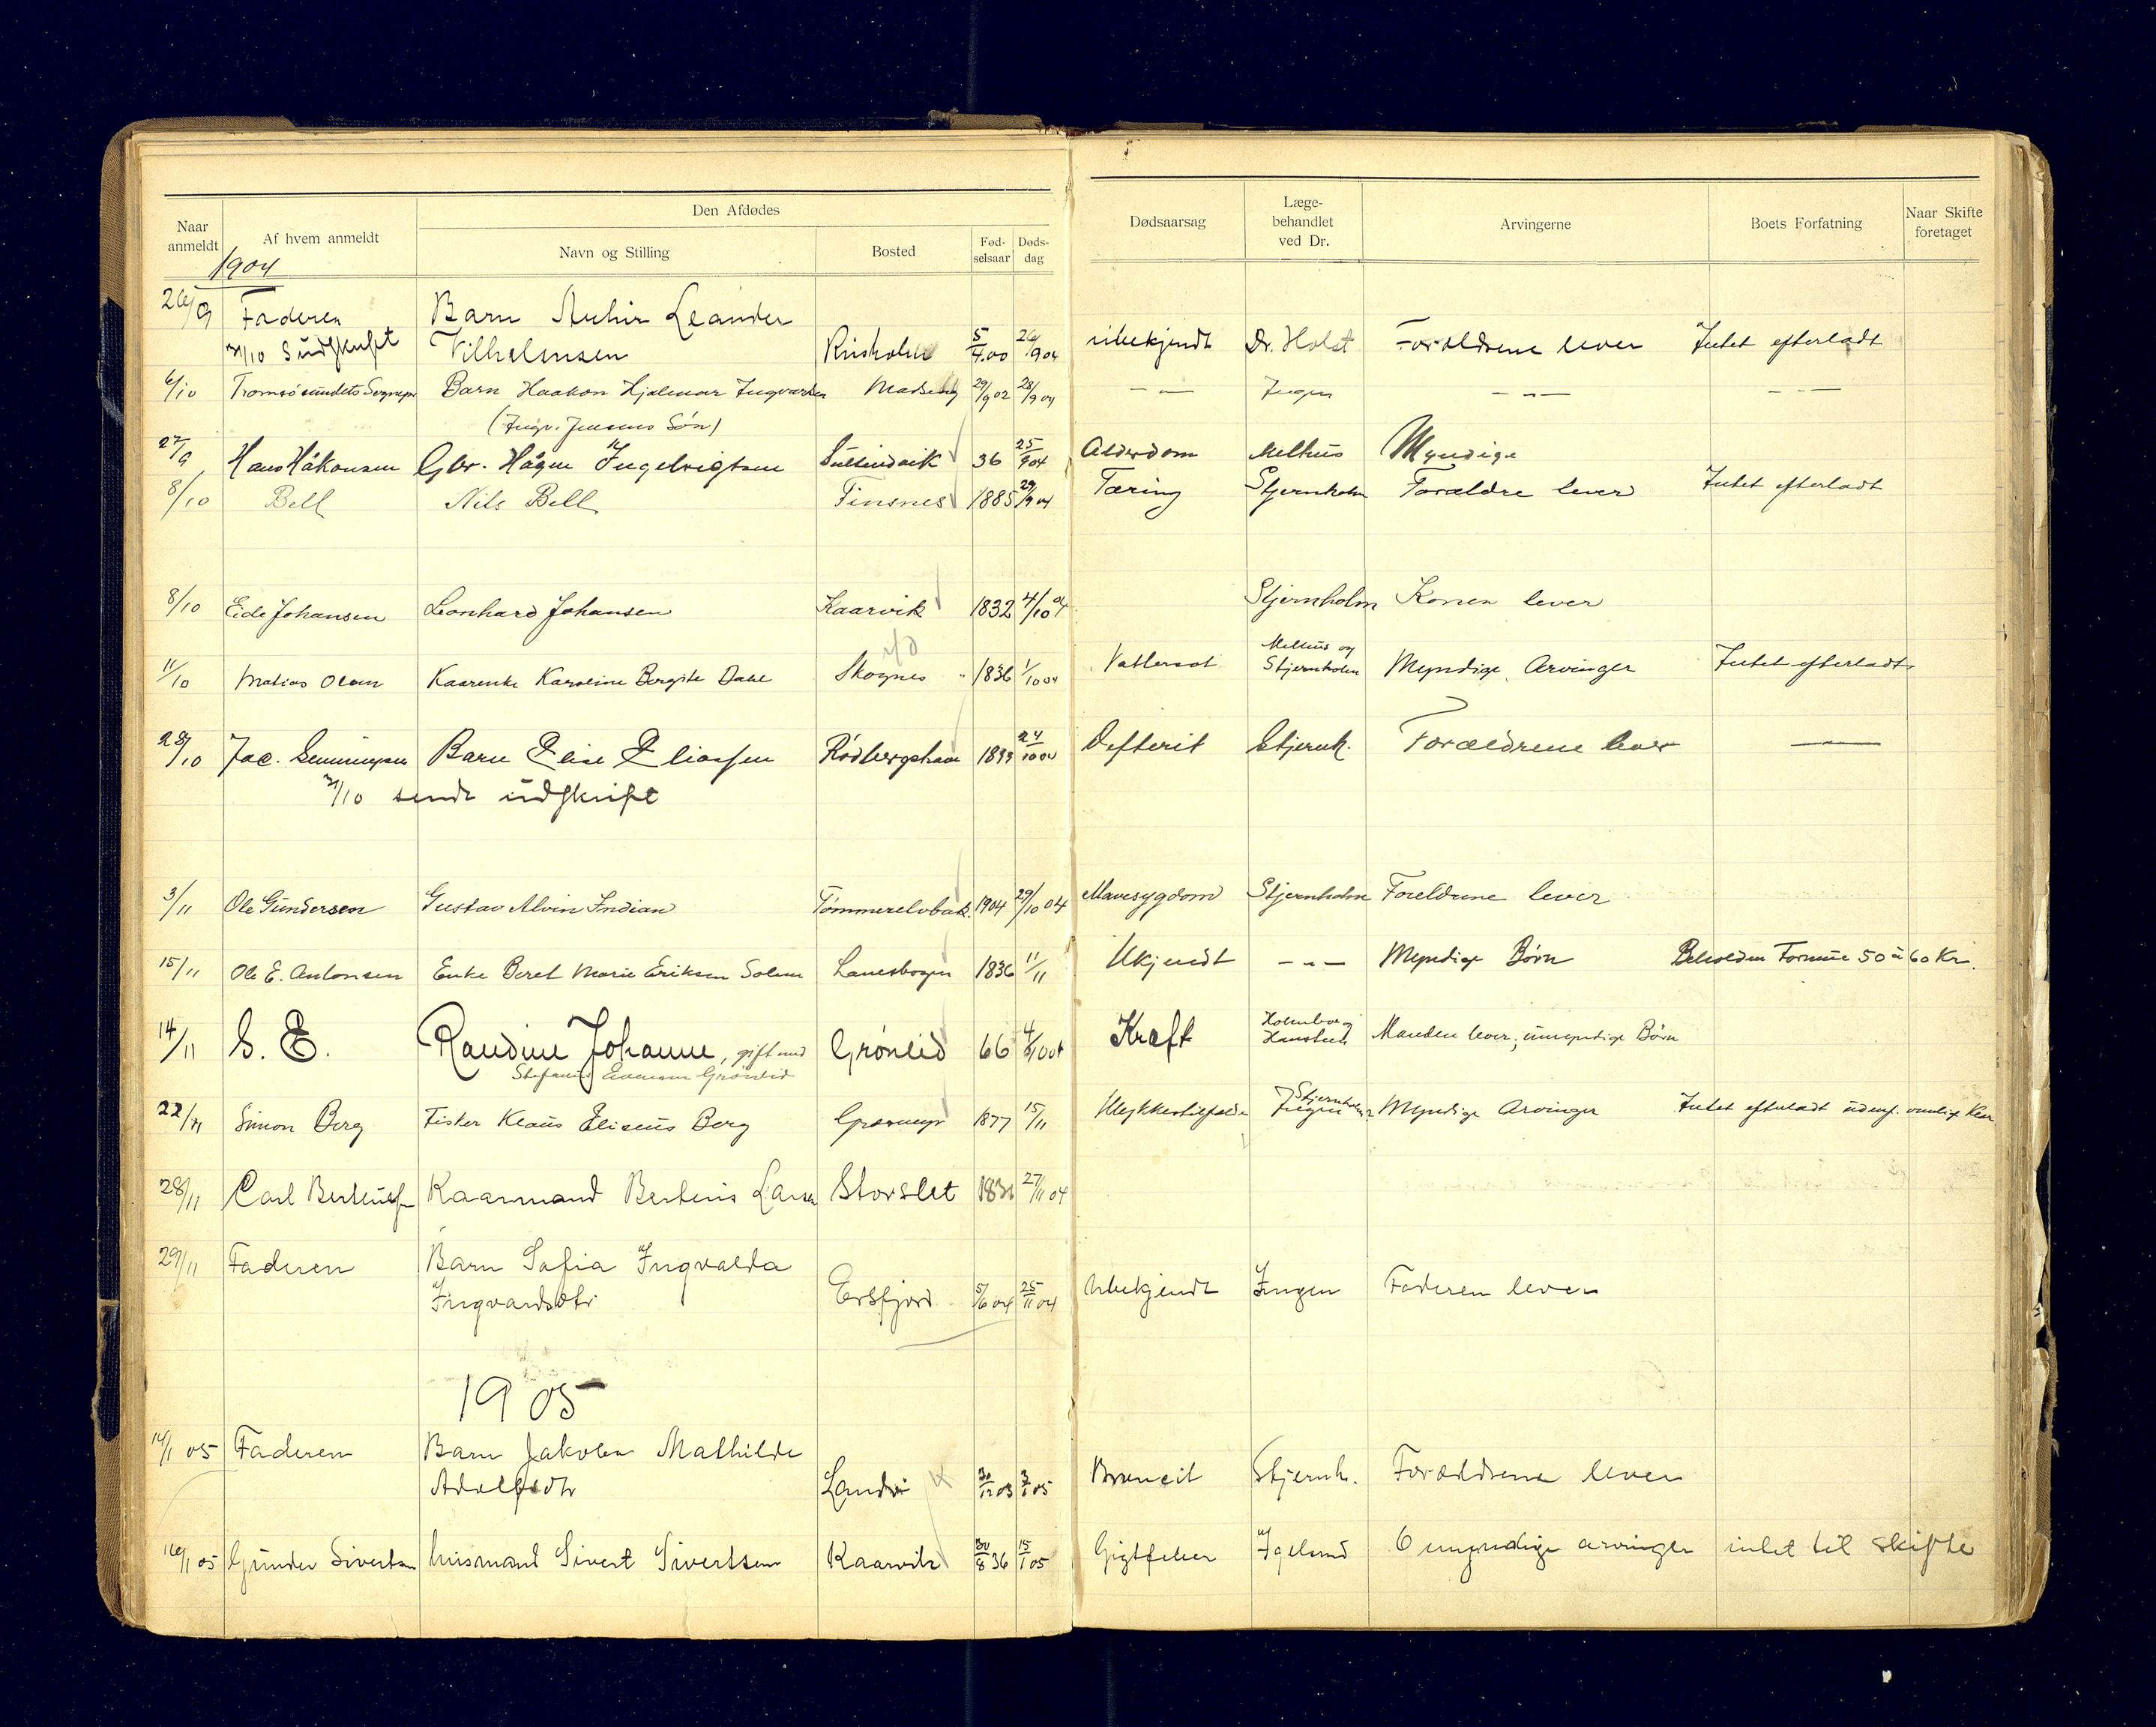 Naar anmeldt | Af hvem anmeldt | Den Afdødes | Dødsaarsag | Læge-behandlet ved Dr. | Arvingerne | Boets Forfatning | Naar Skifte foretaget
Navn og Stilling | Bosted | Fød-selsaar | Døds-dag
1904
26/9 Faderen Barn Leander
31/10 Vilhelmsen 5/4.00 26/9 04 ubekjendt Dr. Holst Forældrene lever Intet efterladt
6/10 Barn Haakon Hjalmar Ingvardsen 29/9 02 28/9 04 — " — Ingen — " — — " —
(Ingv. Jensens Søn)
27/9 Hans Håkonsen Gbr. Ingelrigtsen 36 25/9 04 Alderdom Melhus Myndige
8/10 Bell Nils Bell Finsnes 1885 29/9 04 Tæring Stjernholm Forældre lever Intet efterladt
8/10 Eide Johansen Leonhard Johansen Kaarvik 1832 4/10 04 Stjernholm Konen lever
11/10 Matias Olsen Kaarenke Karoline Bergite Dahl Skognes 1836 1/10 04 Vattersot Melhus og Stjernholm Myndige Arvinger Intet efterladt
28/10 Jac. Barn Elise Eliassen Rødbergshavn 1899 24/10 04 Defterit Stjernh. Forældrene lever —
31/10 sendt udskrift
3/11 Ole Gundersen Gustav Alvin Indian Tømmerelvbak. 1904 29/10 04 Mavesygdom Stjernholm Foreldrene lever
15/11 Ole E. Antonsen Enke Beret Marie Eriksen Solem Lanesbogen 1836 11/11 Ukjendt — " — Myndige Børn Beholden Formue 50 à 60 Kr.
14/11 S. E. Randine Johanne, gift med Grønlid 66 4/11 04 Kræft Holmboe og Hansteen Manden lever; umyndige Børn
Stefanus Evensen Grønlid
22/11 Simon Berg Fisker Klaus Eliseus Berg 1877 15/11 Ulykkestilfælde Ingen Stjernholm Myndige Arvinger Intet efterladt
28/11 Carl Kaarmand Berteus Larsen Storslet 27/11 04
29/11 Faderen Barn Sofia Ingvalda
Ingvardsdtr Ersfjord 5/6 04 25/11 04 Ubekjendt Ingen Faderen lever
1905
14/1 05 Faderen Barn Jakobea Mathilde
Adolfsdtr 30/12 03 3/1 05 Stjernh. Forældrene lever
16/1 05 Gunder Sivertsen husmand Sivert Sivertsen Kaarvik 30/8 36 15/1 05 Gigtfeber Igelund 6 myndige arvinger intet til skifte